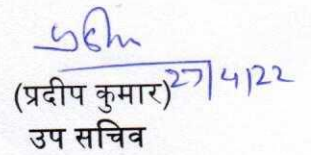 (प्रदीप कुमार) 27/4/22
उप सचिव